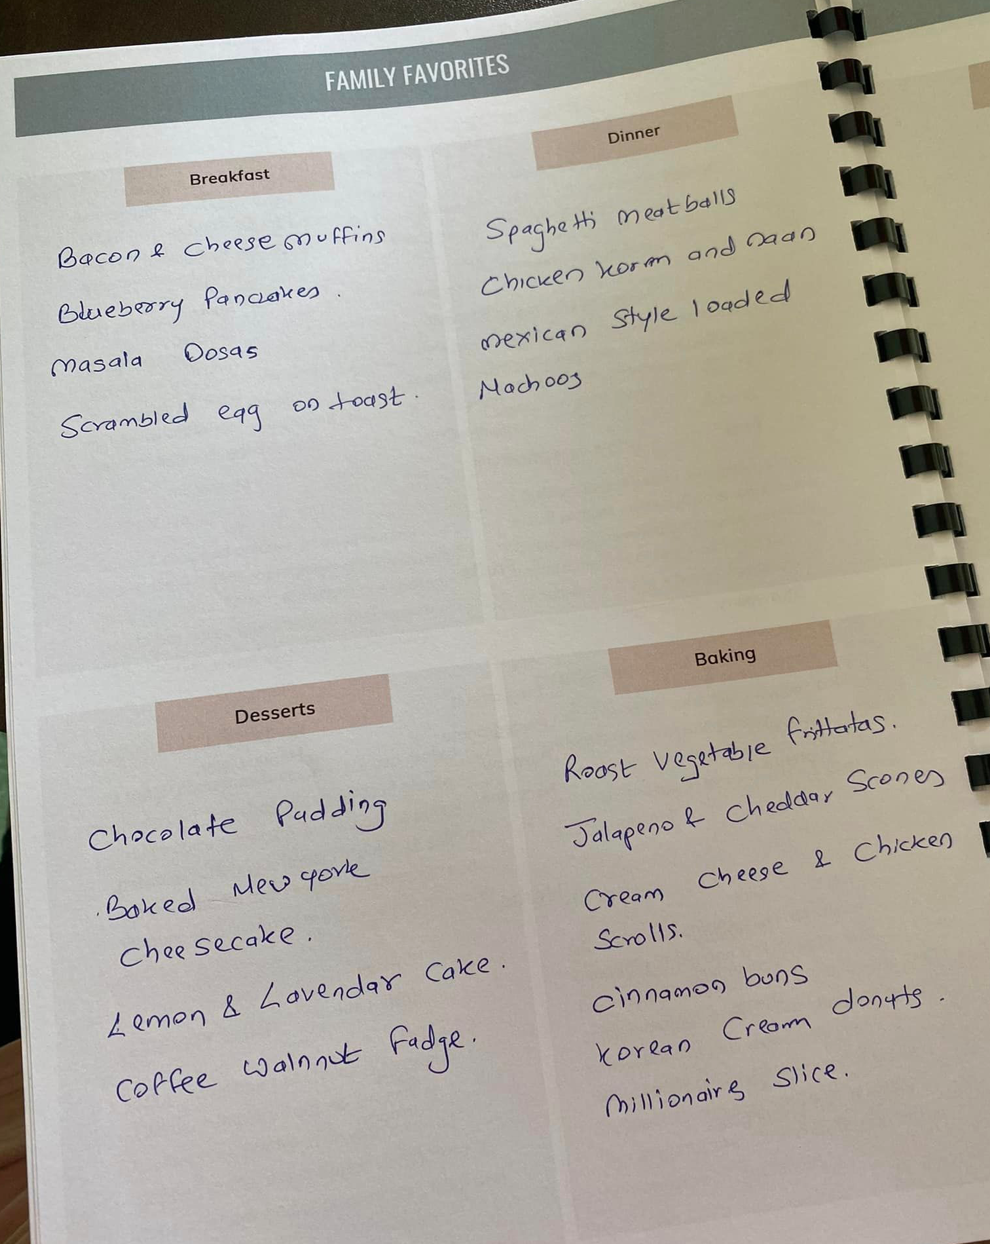 FAMILY FAVORITES
Breakfast
Bacon & cheese muffins
Blueberry Pancakes.
Masala Dosas
Scrambled egg on toast.
Dinner
Spaghetti meatballs
Chicken korm and naan
Mexican Style loaded
Nachoos
Desserts
Chocolate Pudding
Baked New york
cheesecake.
Lemon & Lavendar Cake.
Coffee Walnnut Fudge.
Baking
Roast Vegetable frittatas.
Jalapeno & Cheddar Scones
Cream Cheese & Chicken
Scrolls.
Cinnamon buns
Korean Cream donuts.
Millionairs Slice.